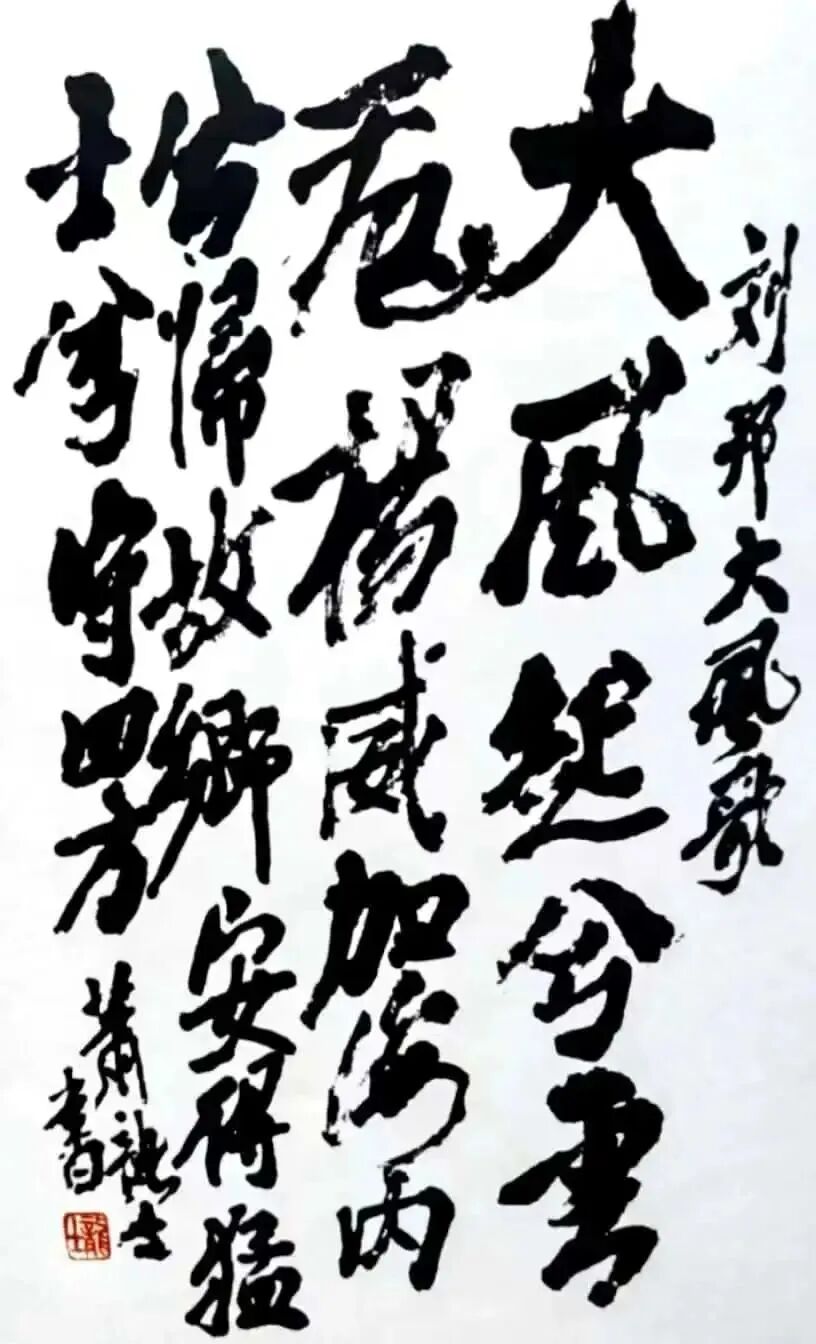 刘邦大風歌
大風起兮雲
飛揚威加海内
兮歸故鄉安得猛
士兮守四方
蕭龍士
書